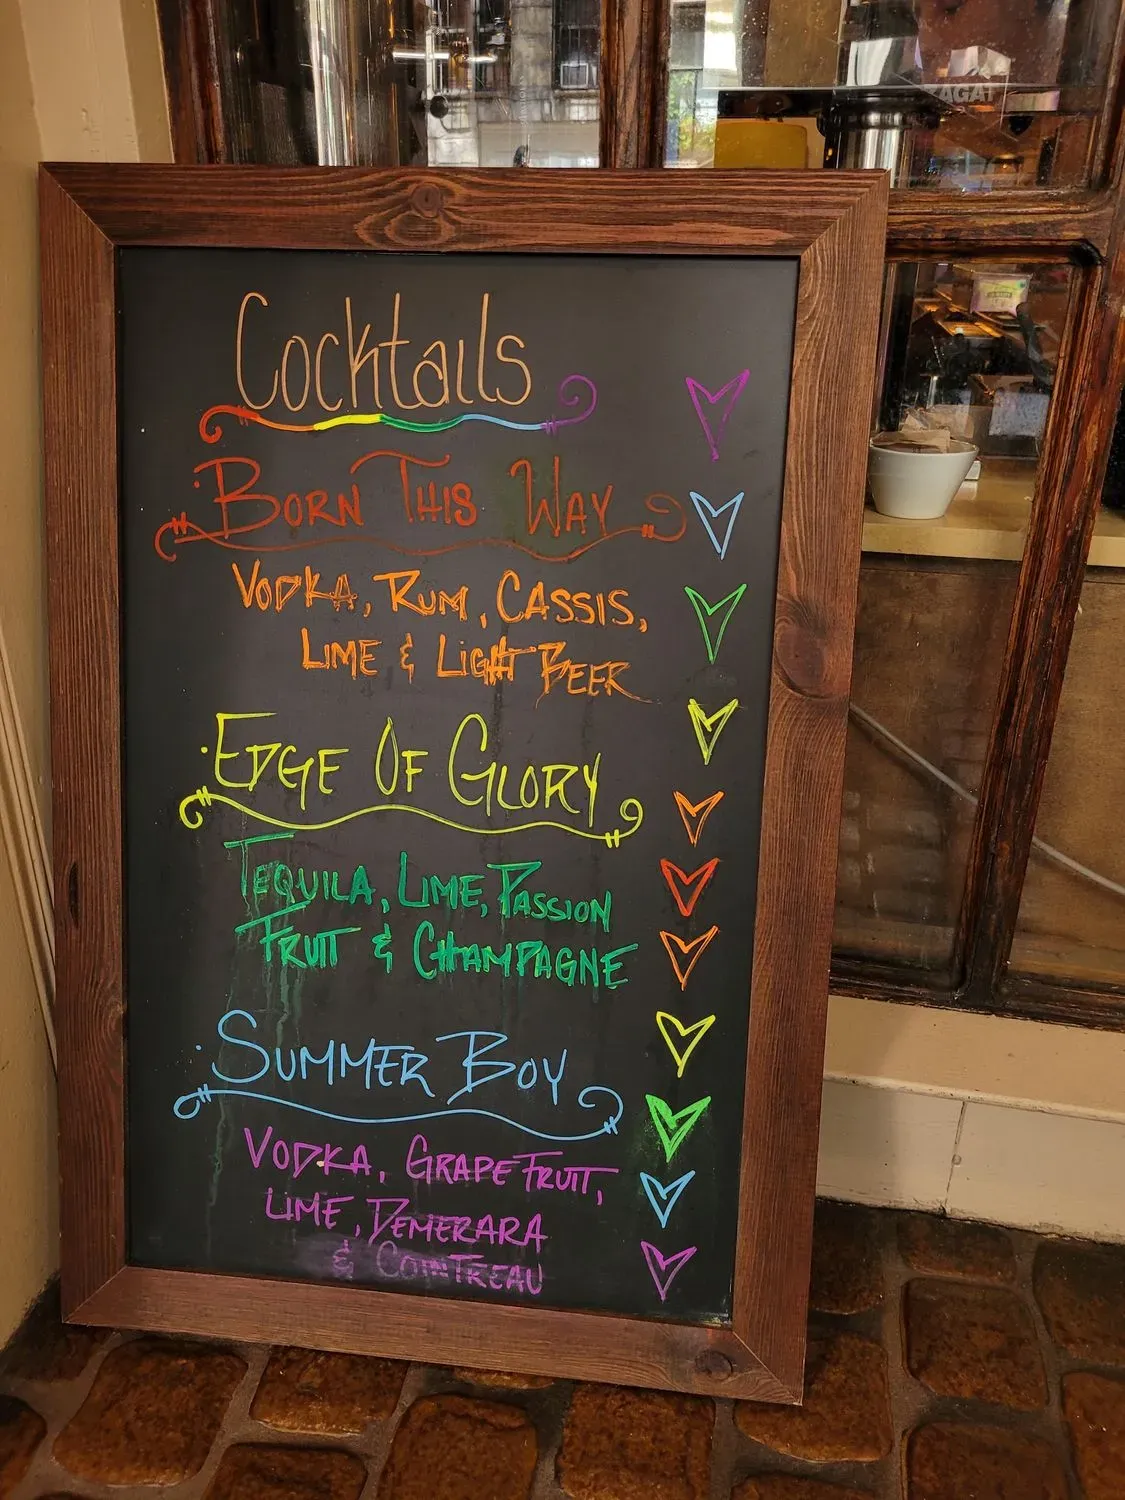 ZAGAT
Cocktails
· BORN THIS WAY
VODKA, RUM, CASSIS,
LIME & LIGHT BEER
· EDGE OF GLORY
TEQUILA, LIME, PASSION
FRUIT & CHAMPAGNE
· SUMMER BOY
VODKA, GRAPEFRUIT,
LIME, DEMERARA
& COINTREAU